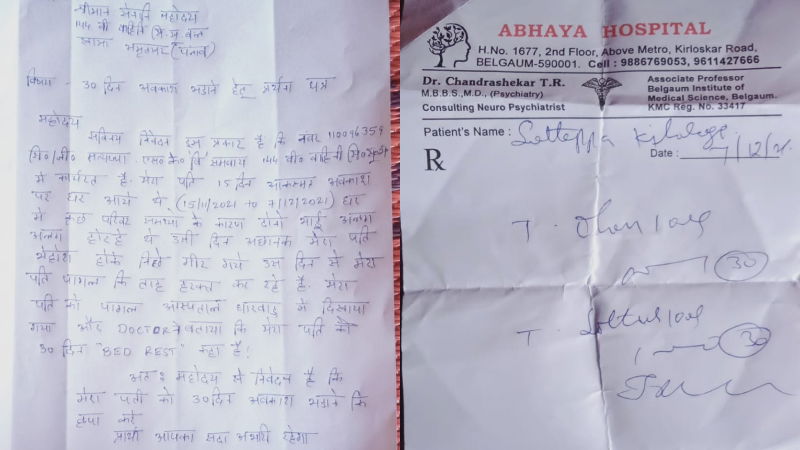 श्रीमान सेनानी महोदय
144 वी वाहिनी
अमृतसर (पंजाब)
विषय - 30 दिन अवकाश बढाने हेतु प्रर्थना पत्र
महोदय
सविनय निवेदन इस प्रकार है कि नंबर 110096359
सत्यप्पा एस० के० वि समवाय 144 वी० वाहिनी
में कार्यरत है. मेरा पति 15 दिन आकस्मत अवकाश
पर घर आये थे (15/11/2021 to 7/12/2021) घर
में कुछ परिवार समस्या के कारण दोनो भाई अलग
अलग होरहे थे उसी दिन अचानक मेरा पति
बेहोश होके गीर गये उस दिन से मेरा
पति पागल कि तरह हरकत कर रहे है. मेरा
पति को पागल अस्पताल धारवाड़ में दिखाया
गया और DOCTOR ने बताया कि मेरा पति को
30 दिन "BED REST" कहा है!
अतः महोदय से निवेदन है कि
मेरा पती को 30 दिन अवकाश बढाने कि
कृपा करे
प्रार्थी आपका सदा अभारी रहेगा
ABHAYA HOSPITAL
H.No. 1677, 2nd Floor, Above Metro, Kirloskar Road,
BELGAUM-590001. Cell : 9886769053, 9611427666
Dr. Chandrashekar T.R.
M.B.B.S.,M.D., (Psychiatry)
Consulting Neuro Psychiatrist
Associate Professor
Belgaum Institute of
Medical Science, Belgaum.
KMC Reg. No. 33417
Patient's Name :
Date : 7/12/21
℞
T.
30
T.
30